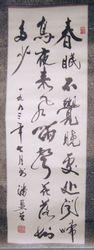 春眠不覺曉處處聞啼
鳥夜来风雨聲花落知
多少 一九九三年七月